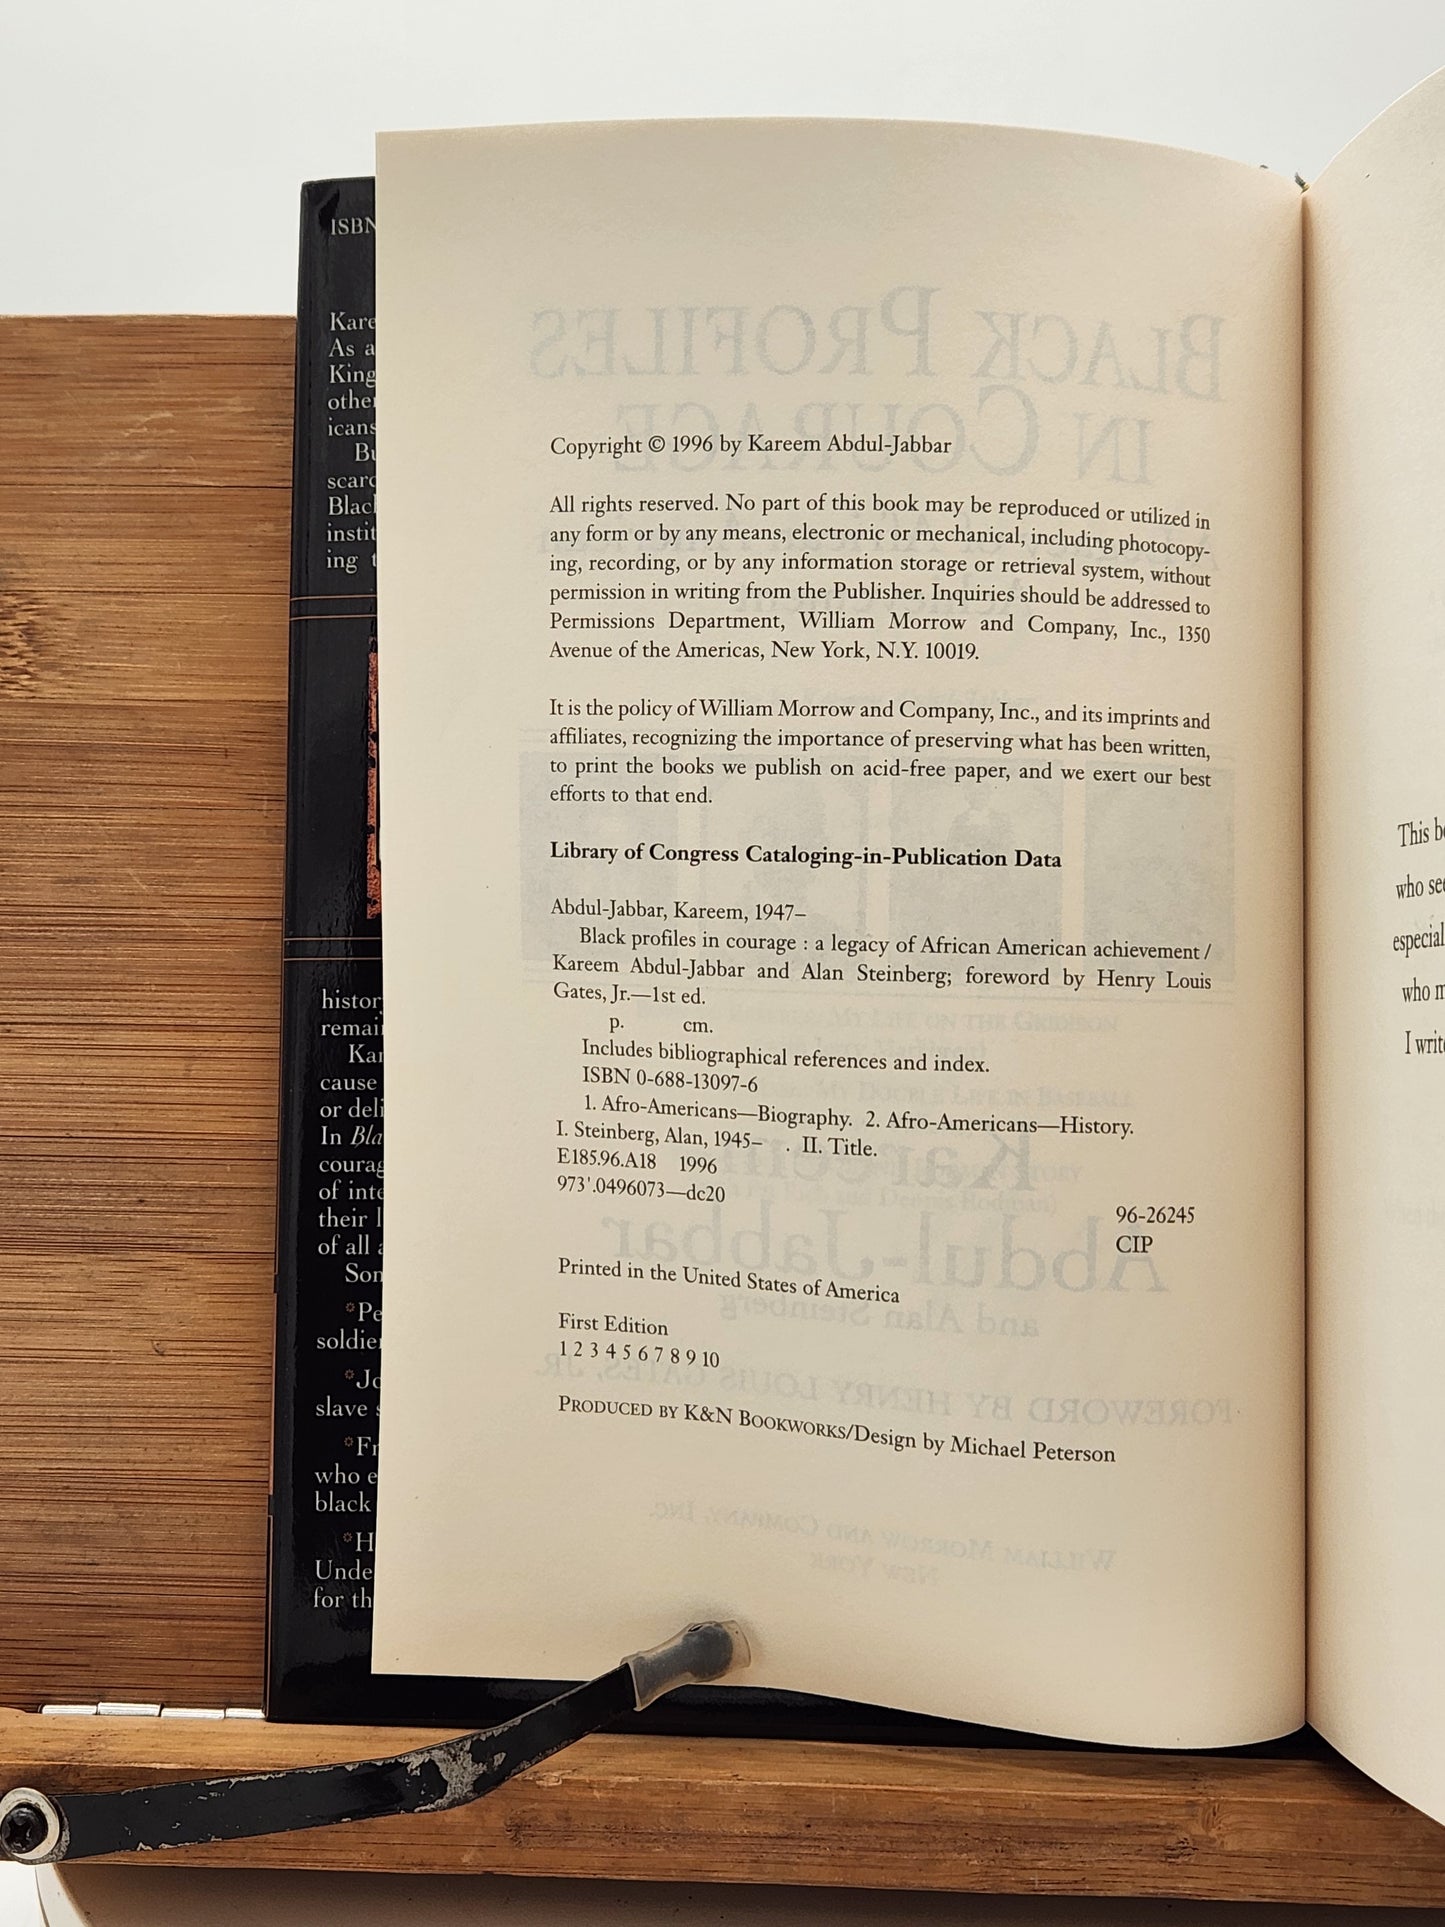 ISBN
Kare
As a
King
other
icans
Bu
scarc
Blac
instit
ing t
histor
remai
Kar
cause
or deli
In Bla
courag
of inte
their l
of all a
Som
*Pe
soldie
*Jo
slave s
*Fr
who e
black
*H
Unde
for th
Copyright © 1996 by Kareem Abdul-Jabbar
All rights reserved. No part of this book may be reproduced or utilized in
any form or by any means, electronic or mechanical, including photocopy-
ing, recording, or by any information storage or retrieval system, without
permission in writing from the Publisher. Inquiries should be addressed to
Permissions Department, William Morrow and Company, Inc., 1350
Avenue of the Americas, New York, N.Y. 10019.
It is the policy of William Morrow and Company, Inc., and its imprints and
affiliates, recognizing the importance of preserving what has been written,
to print the books we publish on acid-free paper, and we exert our best
efforts to that end.
Library of Congress Cataloging-in-Publication Data
Abdul-Jabbar, Kareem, 1947–
Black profiles in courage : a legacy of African American achievement /
Kareem Abdul-Jabbar and Alan Steinberg; foreword by Henry Louis
Gates, Jr.—1st ed.
p. cm.
Includes bibliographical references and index.
ISBN 0-688-13097-6
1. Afro-Americans—Biography. 2. Afro-Americans—History.
I. Steinberg, Alan, 1945– . II. Title.
E185.96.A18 1996
973'.0496073—dc20
96-26245
CIP
Printed in the United States of America
First Edition
1 2 3 4 5 6 7 8 9 10
PRODUCED BY K&N BOOKWORKS/Design by Michael Peterson
This b
who se
especial
who m
I write